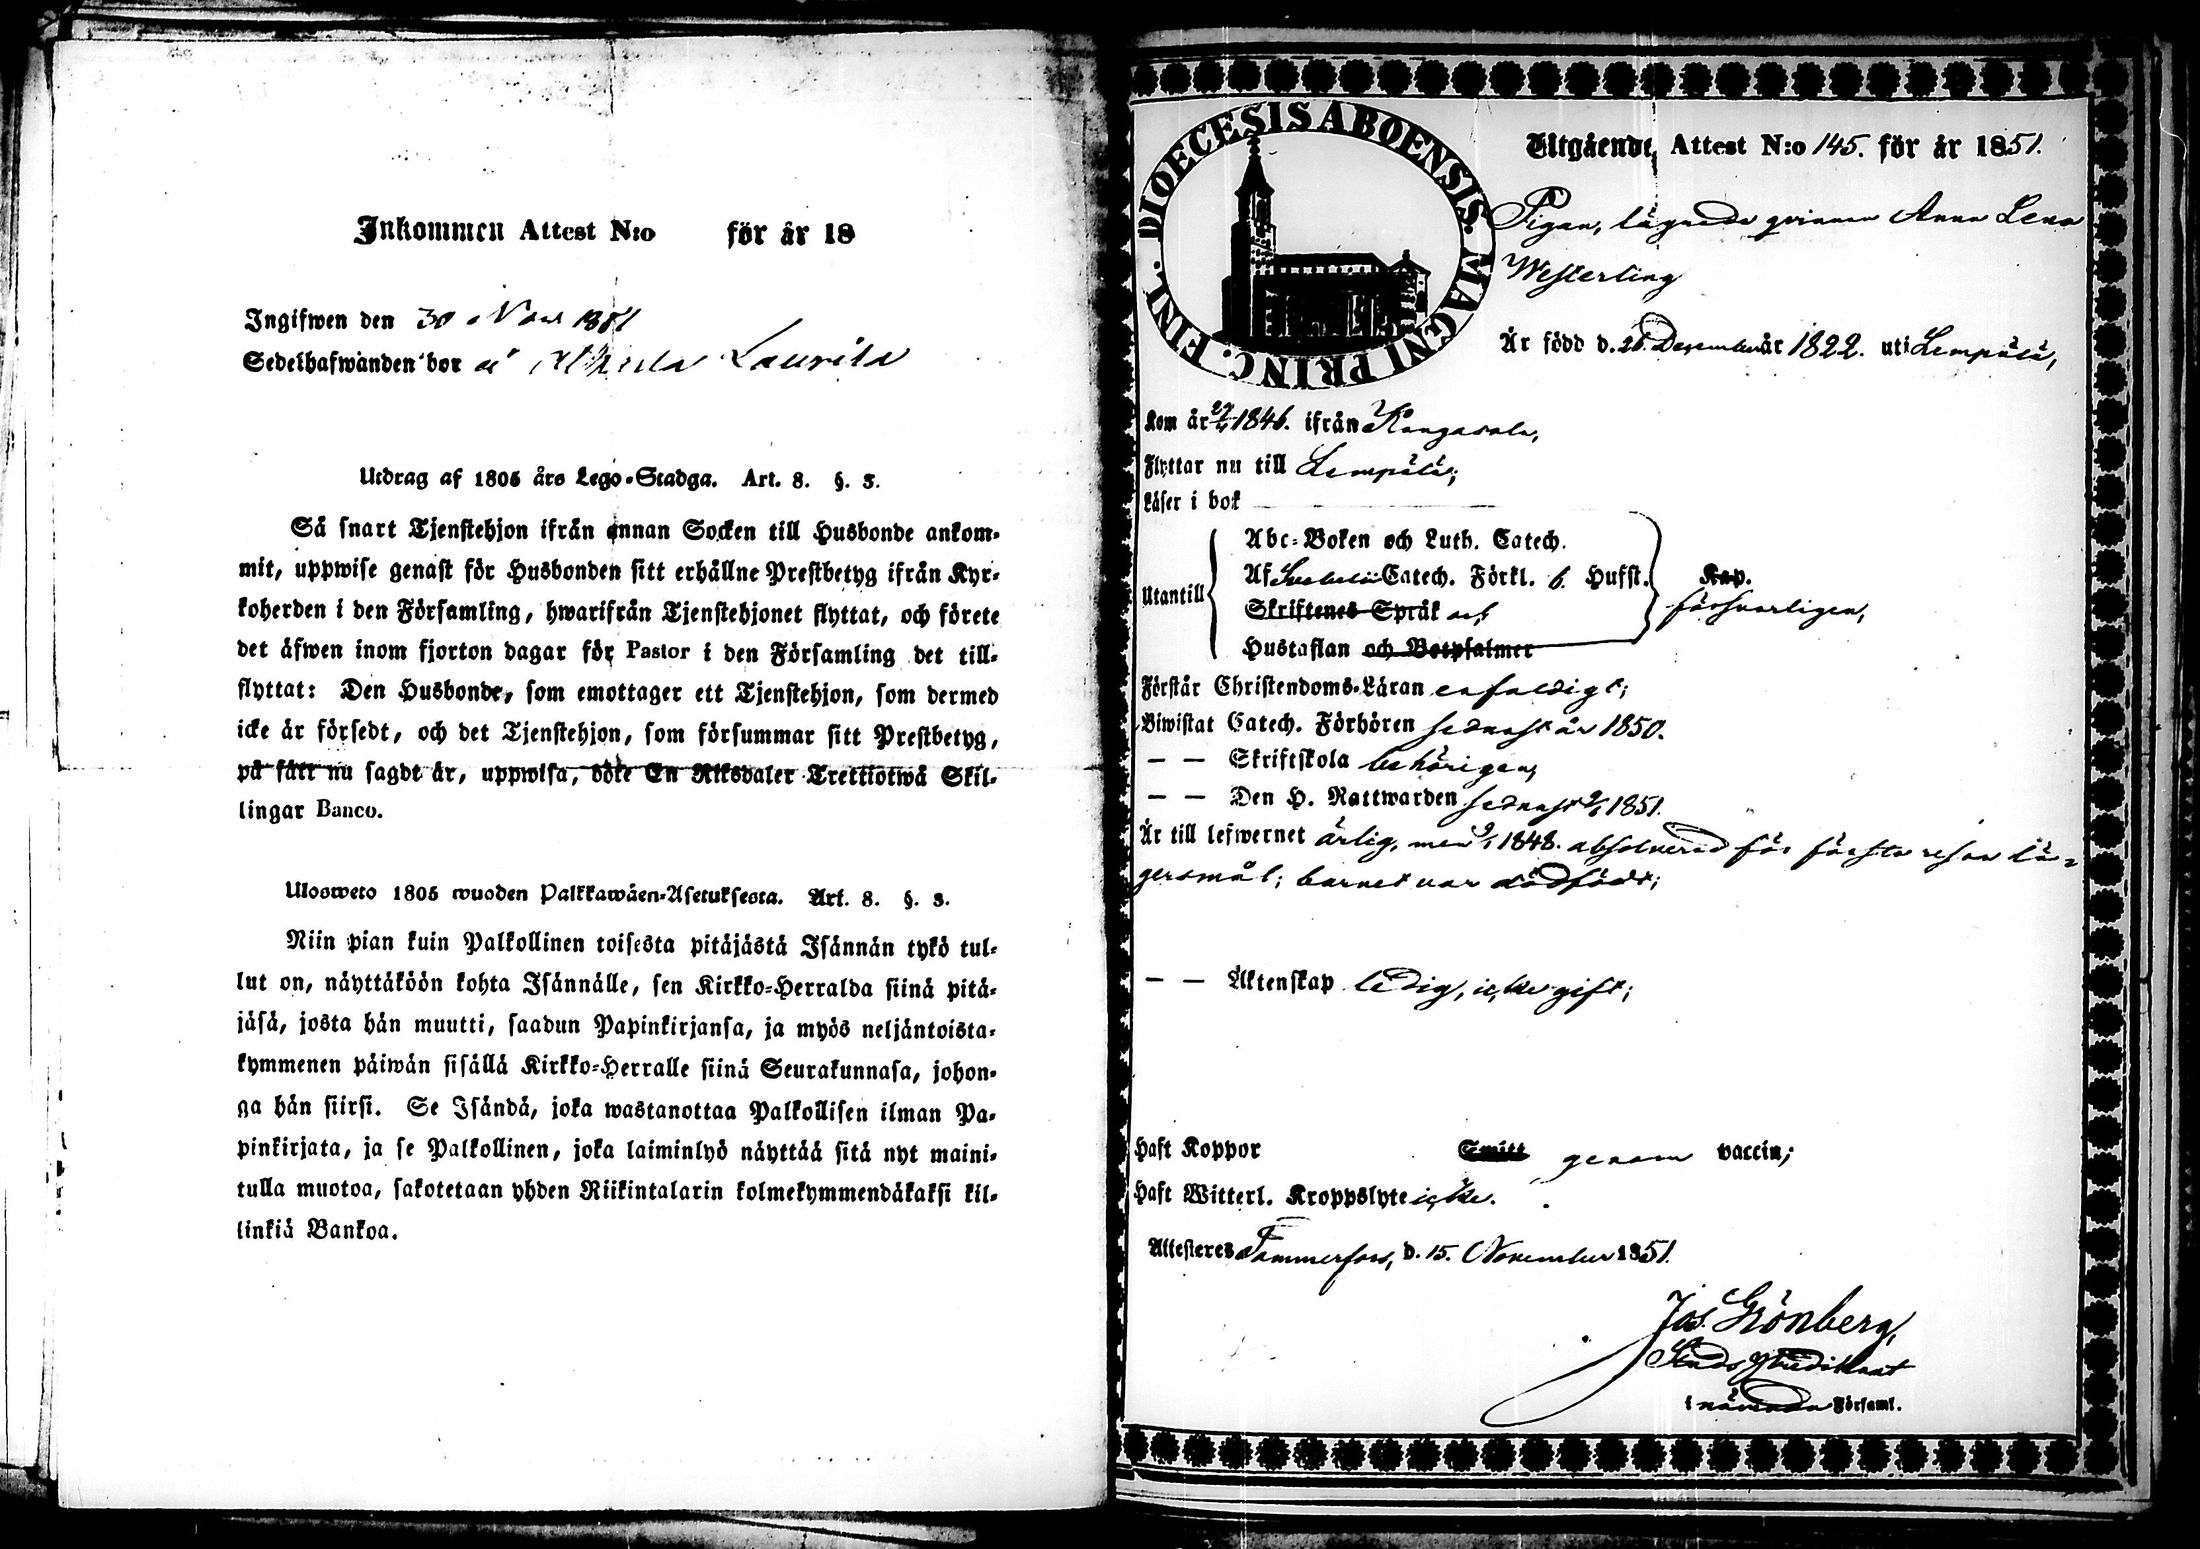 Inkommen Attest N:o för år 18
Ingifwen den 30 Nov 1851
Sedelhafwanden bor å Laurila
Utdrag af 1805 års Lego-Stadga. Art. 8. §. 3.
Så snart Tjenstehjon ifrån annan Socken till Husbonde ankom-
mit, uppwise genast för Husbonden sitt erhållne Prestbetyg ifrån Kyr-
koherden i den Församling, hwarifrån Tjenstehjonet flyttat, och förete
det äfwen inom fjorton dagar för Pastor i den Församling det till-
flyttat: Den Husbonde, som emottager ett Tjenstehjon, som dermed
icke är försedt, och det Tjenstehjon, som försummar sitt Prestbetyg,
på sätt nu sagdt är, uppwisa, böte En Riksdaler Trettiotwå Skil-
lingar Banco.
Ulosweto 1805 wuoden Palkkawäen-Asetuksesta. Art. 8. §. 3.
Niin pian kuin Palkollinen toisesta pitäjästä Isännän tykö tul-
lut on, näyttäköön kohta Isännälle, sen Kirkko-Herralda siinä pitä-
jäsä, josta hän muutti, saadun Papinkirjansa, ja myös neljäntoista-
kymmenen päiwän sisällä Kirkko-Herralle siinä Seurakunnasa, johon-
ga hän siirsi. Se Isändä, joka wastanottaa Palkollisen ilman Pa-
pinkirjata, ja se Palkollinen, joka laiminlyö näyttää sitä nyt maini-
tulla muotoa, sakotetaan yhden Riikintalarin kolmekymmendäkaksi kil-
linkiä Bankoa.
DIOECESIS ABOENSIS. MAGNI PRINC. FINL.
Utgåendt, Attest N:o 145. för år 1851.
Pigan, lägrade qvinnan Anna Lena
Westerling
Är född d. 26 December år 1822. uti Lempälä,
Kom år 1846. ifrån Kangasala,
Flyttar nu till Lempälä;
Läser i bok
Utantill
Abc-Boken och Luth. Catech.
Af Svebelii Catech. Förkl. 6. Hufst.
Skriftenes Språk och
Hustaflan och Botpsalmer
Kap.
försvarligen,
Förstår Christendoms-Läran enfaldigt;
Biwistat Catech. Förhören sednast år 1850.
— — Skriftskola behörigen,
— — Den H. Nattwarden sednast 1851.
Är till lefwernet ärlig, men 1848. absolverad för första resan lä-
gersmål; barnet var dödfödt;
— — Äktenskap ledig, icke gift;
Haft Koppor Smitt genom vaccin;
Haft Witterl. Kroppslyte icke.
Attesteres Tammerfors, d. 15. November 1851.
Jos. Grönberg,
Stads Predikant
i nämnda Församl.